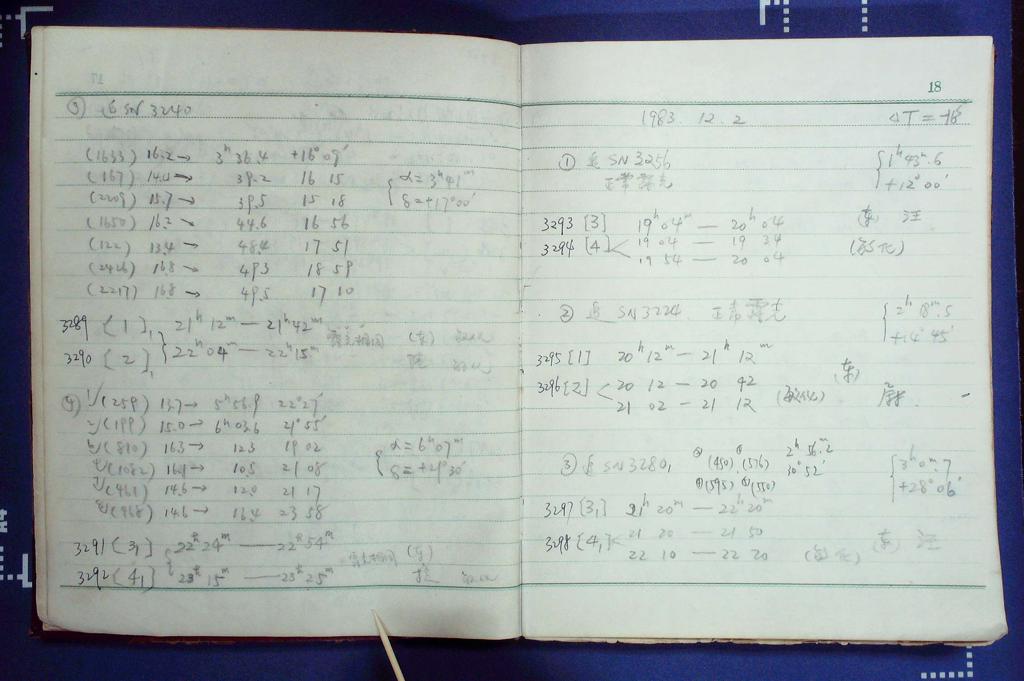 ③ 追 SN 3240
(1633) 16.2→ 3ʰ36.4 +16°09′
(167) 14.4→ 39.2 16 15
(2209) 15.7→ 39.5 15 18
α=3ʰ41ᵐ
δ=+17°00′
(1650) 16.2→ 44.6 16 56
(122) 13.4→ 48.4 17 51
(2426) 16.8→ 49.3 18 59
(2217) 16.8→ 49.5 17 10
3289 [1]₁ 21ʰ12ᵐ—21ʰ42ᵐ
3290 [2]₁ 22ʰ04ᵐ—22ʰ15ᵐ
露光相同
④ 1/(259) 13.7→ 5ʰ56.9 22°27′
2/(199) 15.0→ 6ʰ03.6 21°55′
3/(810) 16.3→ 12.3 19 02
4/(1082) 16.9→ 10.5 21 08
α=6ʰ07ᵐ
δ=+21°30′
5/(461) 14.6→ 12.0 21 17
6/(968) 14.6→ 16.4 23 58
3291 [3₁] 22ʰ24ᵐ—22ʰ54ᵐ
3292 [4₁] 23ʰ15ᵐ—23ʰ25ᵐ
露光相同
18
1983. 12. 2 ΔT=-16ˢ
① 追 SN 3256
正常露光
1ʰ43ᵐ.6
+12°00′
3293 [3] 19ʰ04ᵐ—20ʰ04 (东) 汪
3294 [4] 19 04—19 34 (敏化)
19 54—20 04
② 追 SN 3224 正常露光
2ʰ18ᵐ.5
+14°45′
3295 [1] 20ʰ12ᵐ—21ʰ12ᵐ
3296 [2] 20 12—20 42 (东)
21 02—21 12 (敏化)
③ 追 SN 3280₁ (450) (576) 2ʰ56ᵐ.2
(595) (550) 30°52′
3ʰ0ᵐ.7
+28°06′
3297 [3₁] 21ʰ20ᵐ—22ʰ20ᵐ
3298 [4₁] 21 20—21 50 (东) 汪
22 10—22 20 (敏化)